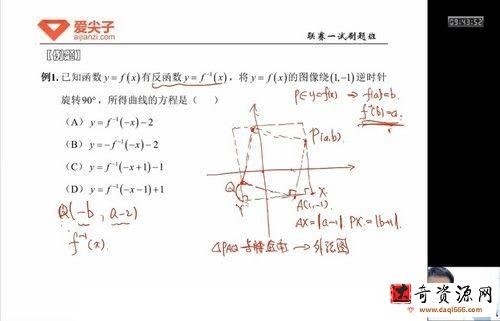 爱尖子
aijianzi.com
联赛一试刷题班
09:43:52
【例题】
例1. 已知函数 y = f(x) 有反函数 y = f⁻¹(x)，将 y = f(x) 的图像绕(1,-1) 逆时针
旋转90°，所得曲线的方程是（　）
(A) y = f⁻¹(-x) - 2
(B) y = -f⁻¹(-x) - 2
(C) y = f⁻¹(-x+1) - 1
(D) y = f⁻¹(-x-1) + 1
P∈y=f(x) → f(a)=b.
f⁻¹(b)=a.
P(a,b)
Q
Y
X
A(1,-1).
AX=|a-1|. PX=|b+1|.
Q(-b, a-2)
f⁻¹(x).
△PAQ
→ 外弦图
奇资源网
www.daqi666.com